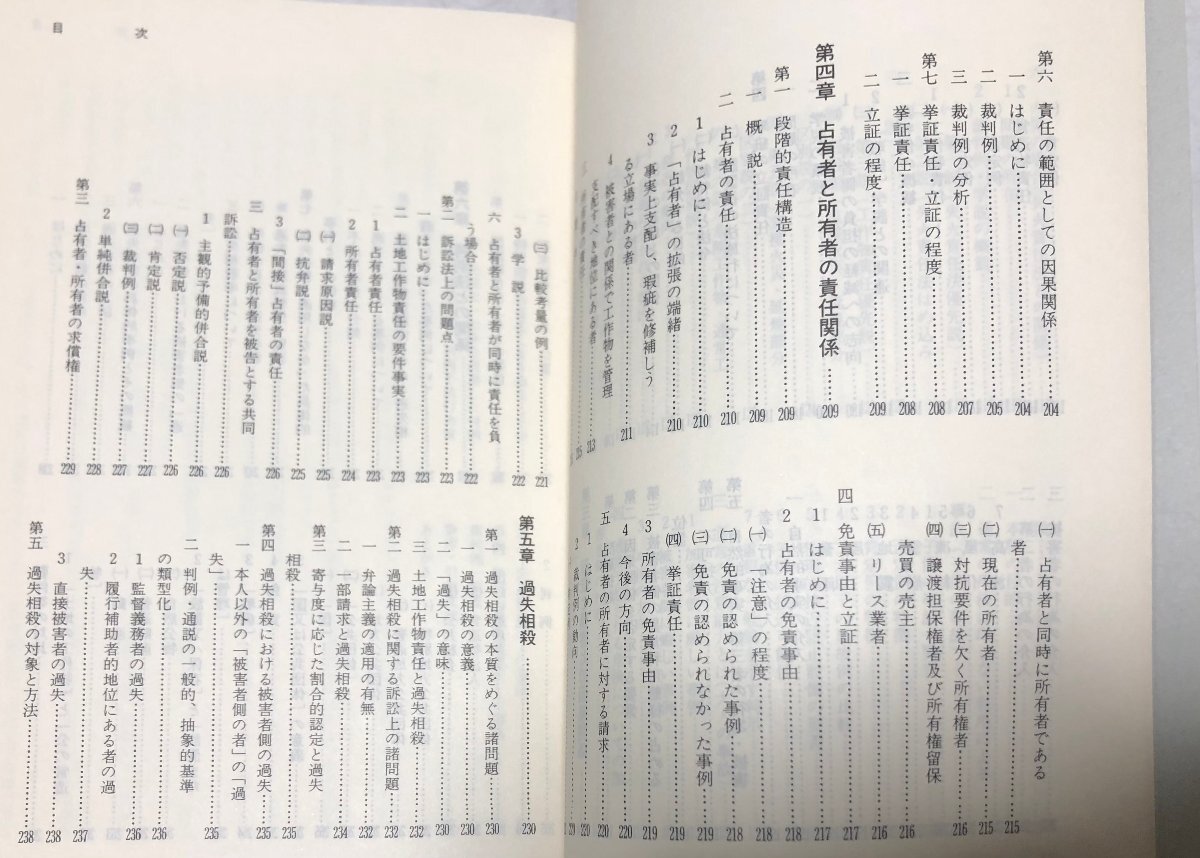 第六 責任の範囲としての因果関係……204
一 はじめに……204
二 裁判例……205
三 裁判例の分析……207
第七 挙証責任・立証の程度……208
一 挙証責任……208
二 立証の程度……209
第四章 占有者と所有者の責任関係……209
第一 段階的責任構造……209
一 概説……209
二 占有者の責任……210
1 はじめに……210
2 「占有者」の拡張の端緒……210
3 事実上支配し、瑕疵を修補しう
る立場にある者……211
4 被害者との関係で工作物を管理
支配すべき地位にある者……213
(一) 占有者と同時に所有者である
者……215
(二) 現在の所有者……215
(三) 対抗要件を欠く所有権者……216
(四) 譲渡担保権者及び所有権留保
売買の売主……216
(五) リース業者……216
四 免責事由と立証……217
1 はじめに……217
2 占有者の免責事由……218
(一) 「注意」の程度……218
(二) 免責の認められた事例……218
(三) 免責の認められなかった事例……219
(四) 挙証責任……219
3 所有者の免責事由……219
4 今後の方向……220
五 占有者の所有者に対する請求……220
1 はじめに……220
2 裁判例の動向……220
目次
(三) 比較考量の例……221
3 学説……222
六 占有者と所有者が同時に責任を負
う場合……222
第二 訴訟法上の問題点……223
一 はじめに……223
二 土地工作物責任の要件事実……223
1 占有者責任……223
2 所有者責任……224
(一) 請求原因説……225
(二) 抗弁説……225
3 「間接」占有者の責任……226
三 占有者と所有者を被告とする共同
訴訟……226
1 主観的予備的併合説……226
(一) 否定説……226
(二) 肯定説……227
(三) 裁判例……227
2 単純併合説……228
第三 占有者・所有者の求償権……229
第五章 過失相殺……230
第一 過失相殺の本質をめぐる諸問題……230
一 過失相殺の意義……230
二 「過失」の意味……230
三 土地工作物責任と過失相殺……232
第二 過失相殺に関する訴訟上の諸問題……232
一 弁論主義の適用の有無……232
二 一部請求と過失相殺……234
第三 寄与度に応じた割合的認定と過失
相殺……235
第四 過失相殺における被害者側の過失……235
一 本人以外の「被害者側の者」の「過
失」……235
二 判例・通説の一般的、抽象的基準
の類型化……236
1 監督義務者の過失……236
2 履行補助者的地位にある者の過
失……237
3 直接被害者の過失……238
第五 過失相殺の対象と方法……238